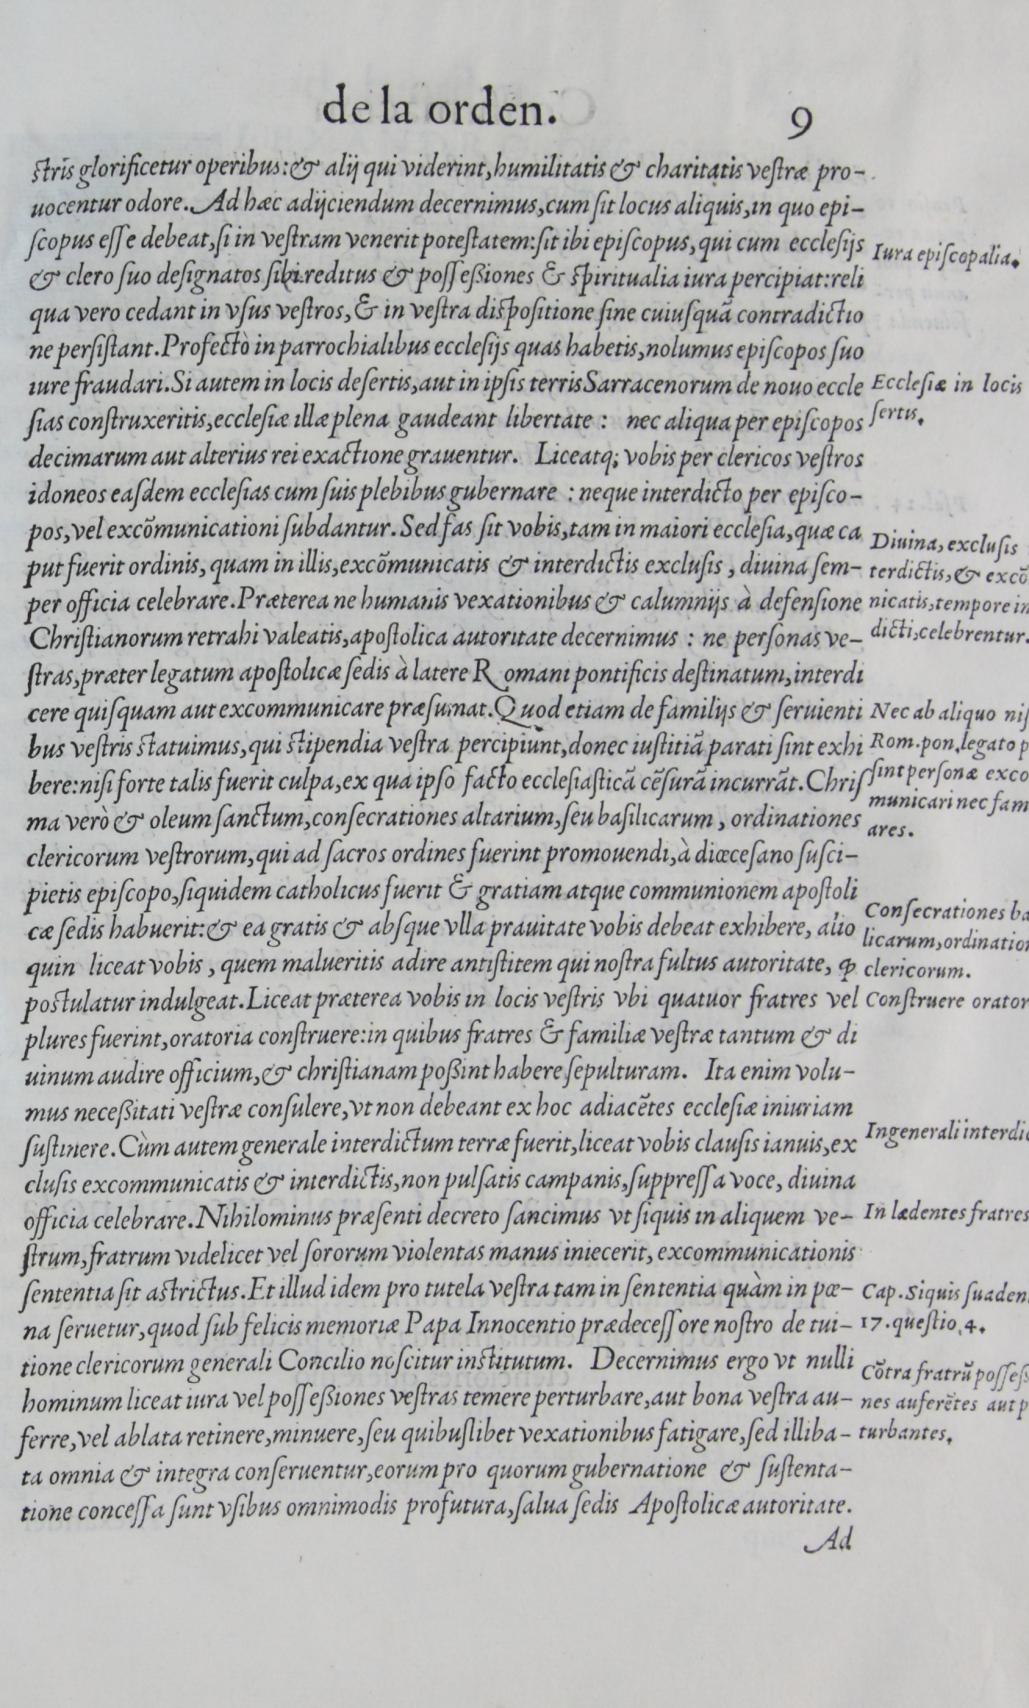 de la orden. 9
ſtris glorificetur operibus: & alij qui viderint, humilitatis & charitatis veſtræ pro-
uocentur odore. Ad hæc adijciendum decernimus, cum ſit locus aliquis, in quo epi-
ſcopus eſſe debeat, ſi in veſtram venerit poteſtatem: ſit ibi epiſcopus, qui cum eccleſijs
& clero ſuo deſignatos ſibi reditus & poſſeßiones & ſpiritualia iura percipiat: reli
qua vero cedant in vſus veſtros, & in veſtra diſpoſitione ſine cuiuſquã contradictio
ne perſiſtant. Profectò in parrochialibus eccleſijs quas habetis, nolumus epiſcopos ſuo
iure fraudari. Si autem in locis deſertis, aut in ipſis terris Sarracenorum de nouo eccle
ſias conſtruxeritis, eccleſiæ illæ plena gaudeant libertate: nec aliqua per epiſcopos
decimarum aut alterius rei exactione grauentur. Liceatq; vobis per clericos veſtros
idoneos eaſdem eccleſias cum ſuis plebibus gubernare: neque interdicto per epiſco-
pos, vel excõmunicationi ſubdantur. Sed fas ſit vobis, tam in maiori eccleſia, quæ ca
put fuerit ordinis, quam in illis, excõmunicatis & interdictis excluſis, diuina ſem-
per officia celebrare. Præterea ne humanis vexationibus & calumnijs à defenſione
Chriſtianorum retrahi valeatis, apoſtolica autoritate decernimus: ne perſonas ve-
ſtras, præter legatum apoſtolicæ ſedis à latere Romani pontificis deſtinatum, interdi
cere quiſquam aut excommunicare præſumat. Quod etiam de familijs & ſeruienti
bus veſtris ſtatuimus, qui ſtipendia veſtra percipiunt, donec iuſtitiã parati ſint exhi
bere: niſi forte talis fuerit culpa, ex qua ipſo facto eccleſiaſticã cẽſurã incurrãt. Chriſ
ma verò & oleum ſanctum, conſecrationes altarium, ſeu baſilicarum, ordinationes
clericorum veſtrorum, qui ad ſacros ordines fuerint promouendi, à diœceſano ſuſci-
pietis epiſcopo, ſiquidem catholicus fuerit & gratiam atque communionem apoſtoli
cæ ſedis habuerit: & ea gratis & abſque vlla prauitate vobis debeat exhibere, alio
quin liceat vobis, quem malueritis adire antiſtitem qui noſtra fultus autoritate, ꝙ
poſtulatur indulgeat. Liceat præterea vobis in locis veſtris vbi quatuor fratres vel
plures fuerint, oratoria conſtruere: in quibus fratres & familiæ veſtræ tantum & di
uinum audire officium, & chriſtianam poßint habere ſepulturam. Ita enim volu-
mus neceßitati veſtræ conſulere, vt non debeant ex hoc adiacẽtes eccleſiæ iniuriam
ſuſtinere. Cùm autem generale interdictum terræ fuerit, liceat vobis clauſis ianuis, ex
cluſis excommunicatis & interdictis, non pulſatis campanis, ſuppreſſa voce, diuina
officia celebrare. Nihilominus præſenti decreto ſancimus vt ſiquis in aliquem ve-
ſtrum, fratrum videlicet vel ſororum violentas manus iniecerit, excommunicationis
ſententia ſit aſtrictus. Et illud idem pro tutela veſtra tam in ſententia quàm in pœ-
na ſeruetur, quod ſub felicis memoriæ Papa Innocentio prædeceſſore noſtro de tui-
tione clericorum generali Concilio noſcitur inſtitutum. Decernimus ergo vt nulli
hominum liceat iura vel poſſeßiones veſtras temere perturbare, aut bona veſtra au-
ferre, vel ablata retinere, minuere, ſeu quibuſlibet vexationibus fatigare, ſed illiba-
ta omnia & integra conſeruentur, eorum pro quorum gubernatione & ſuſtenta-
tione conceſſa ſunt vſibus omnimodis profutura, ſalua ſedis Apoſtolicæ autoritate.
Ad
Iura epiſcopalia.
Eccleſiæ in locis
ſertis.
Diuina, excluſis
terdictis, & excõ
nicatis, tempore in
dicti, celebrentur.
Nec ab aliquo niſ
Rom. pon. legato p
ſint perſonæ exco
municari nec fam
ares.
Conſecrationes ba
licarum, ordination
clericorum.
Conſtruere orator
In generali interdic
In lædentes fratres
Cap. Siquis ſuaden
17. queſtio. 4.
Cõtra fratrũ poſſeſ
nes auferẽtes aut p
turbantes.